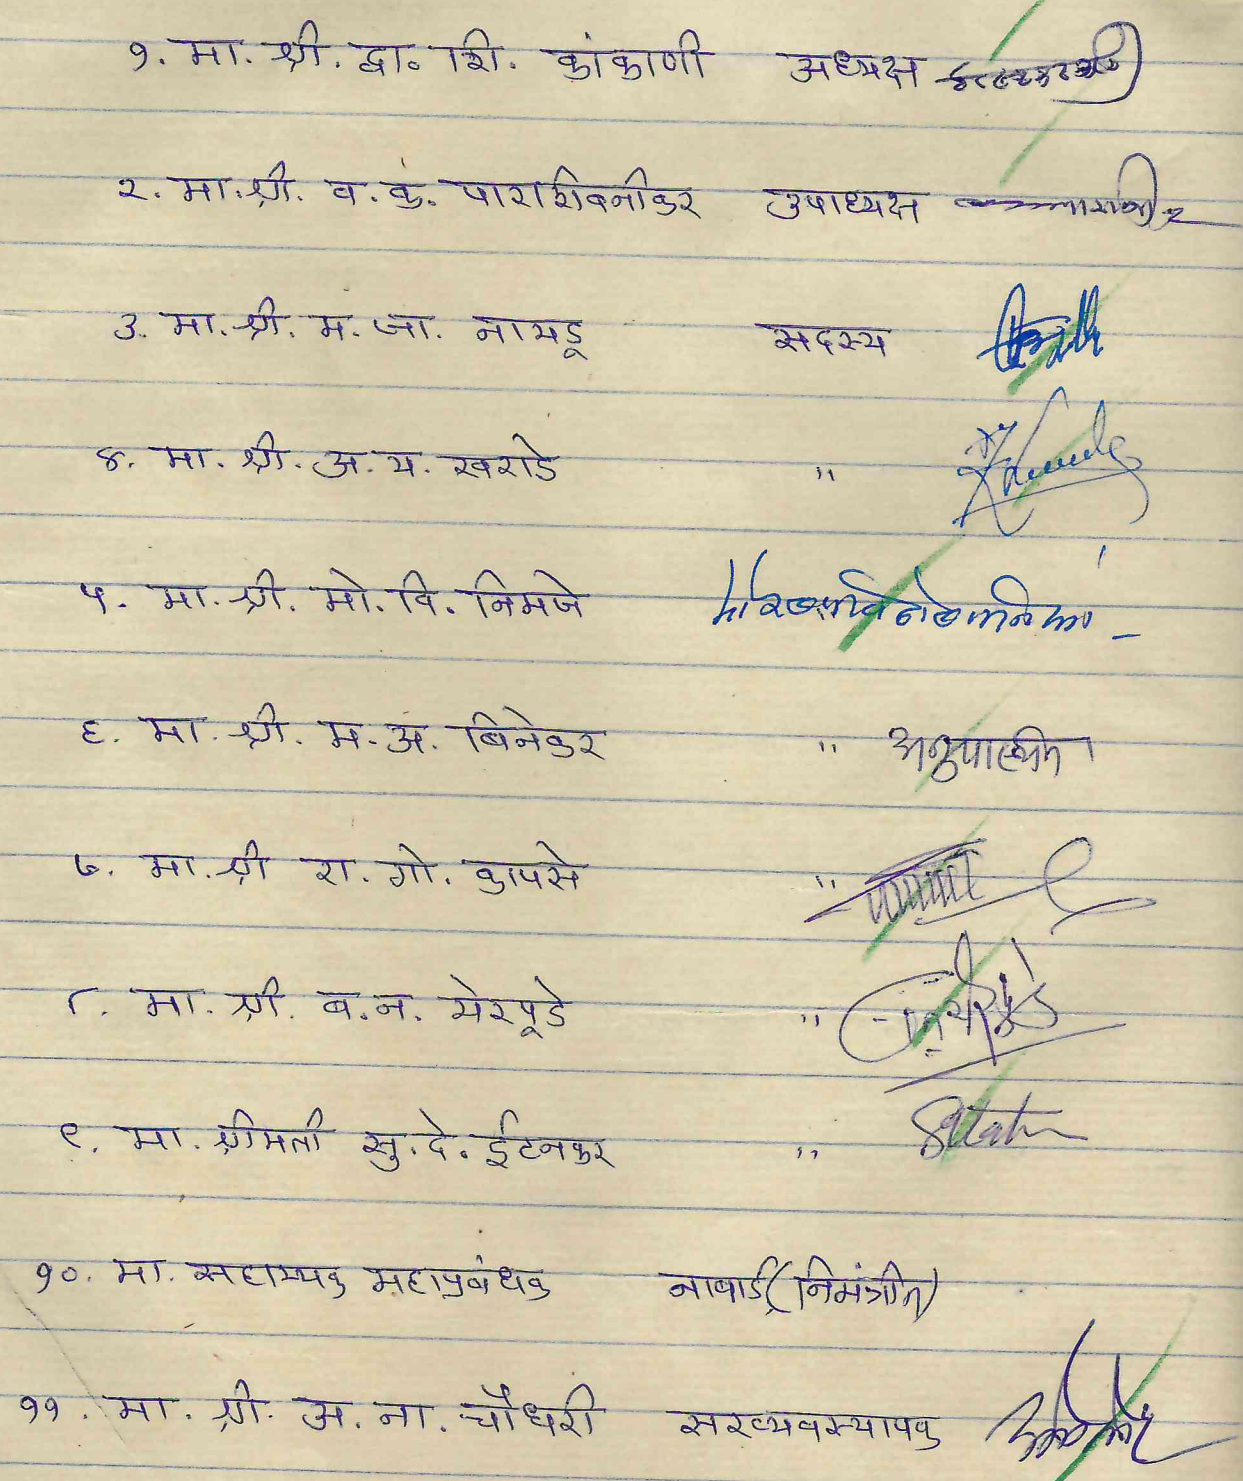 १. मा. श्री. द्वा. शि. कांकाणी अध्यक्ष
२. मा. श्री. व. कुं. पाराशिवनीकर उपाध्यक्ष
३. मा. श्री. म. जा. नायडू सदस्य
४. मा. श्री. अ. य. खराडे "
५. मा. श्री. मो. वि. निमजे
६. मा. श्री. म. अ. बिनेकर " अनुपास्थीत
७. मा. श्री रा. गो. कापसे "
८. मा. श्री. ब. न. येरपूडे "
९. मा. श्रीमती सु. दे. ईटनकर "
१०. मा. सहाय्यक महाप्रबंधक नाबार्ड (निमंत्रीत)
११. मा. श्री. अ. ना. चौधरी सरव्यवस्थापक